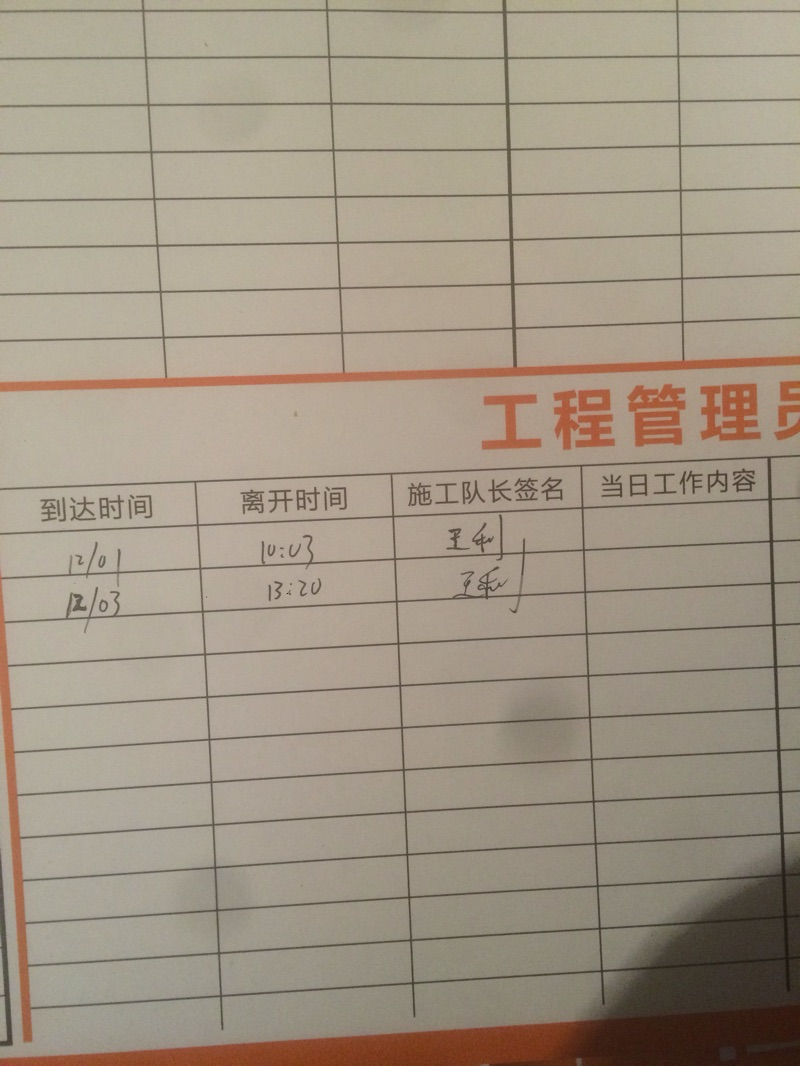 工程管理员
到达时间 离开时间 施工队长签名 当日工作内容
12/01 10:03 王利
12/03 13:20 王利